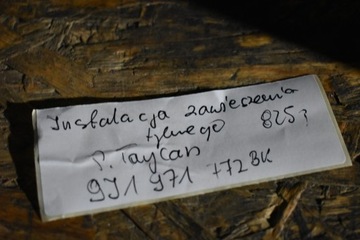 Instalacja zawieszenia
tylnego 825?
P. Taycan
9J1 971 772 BK